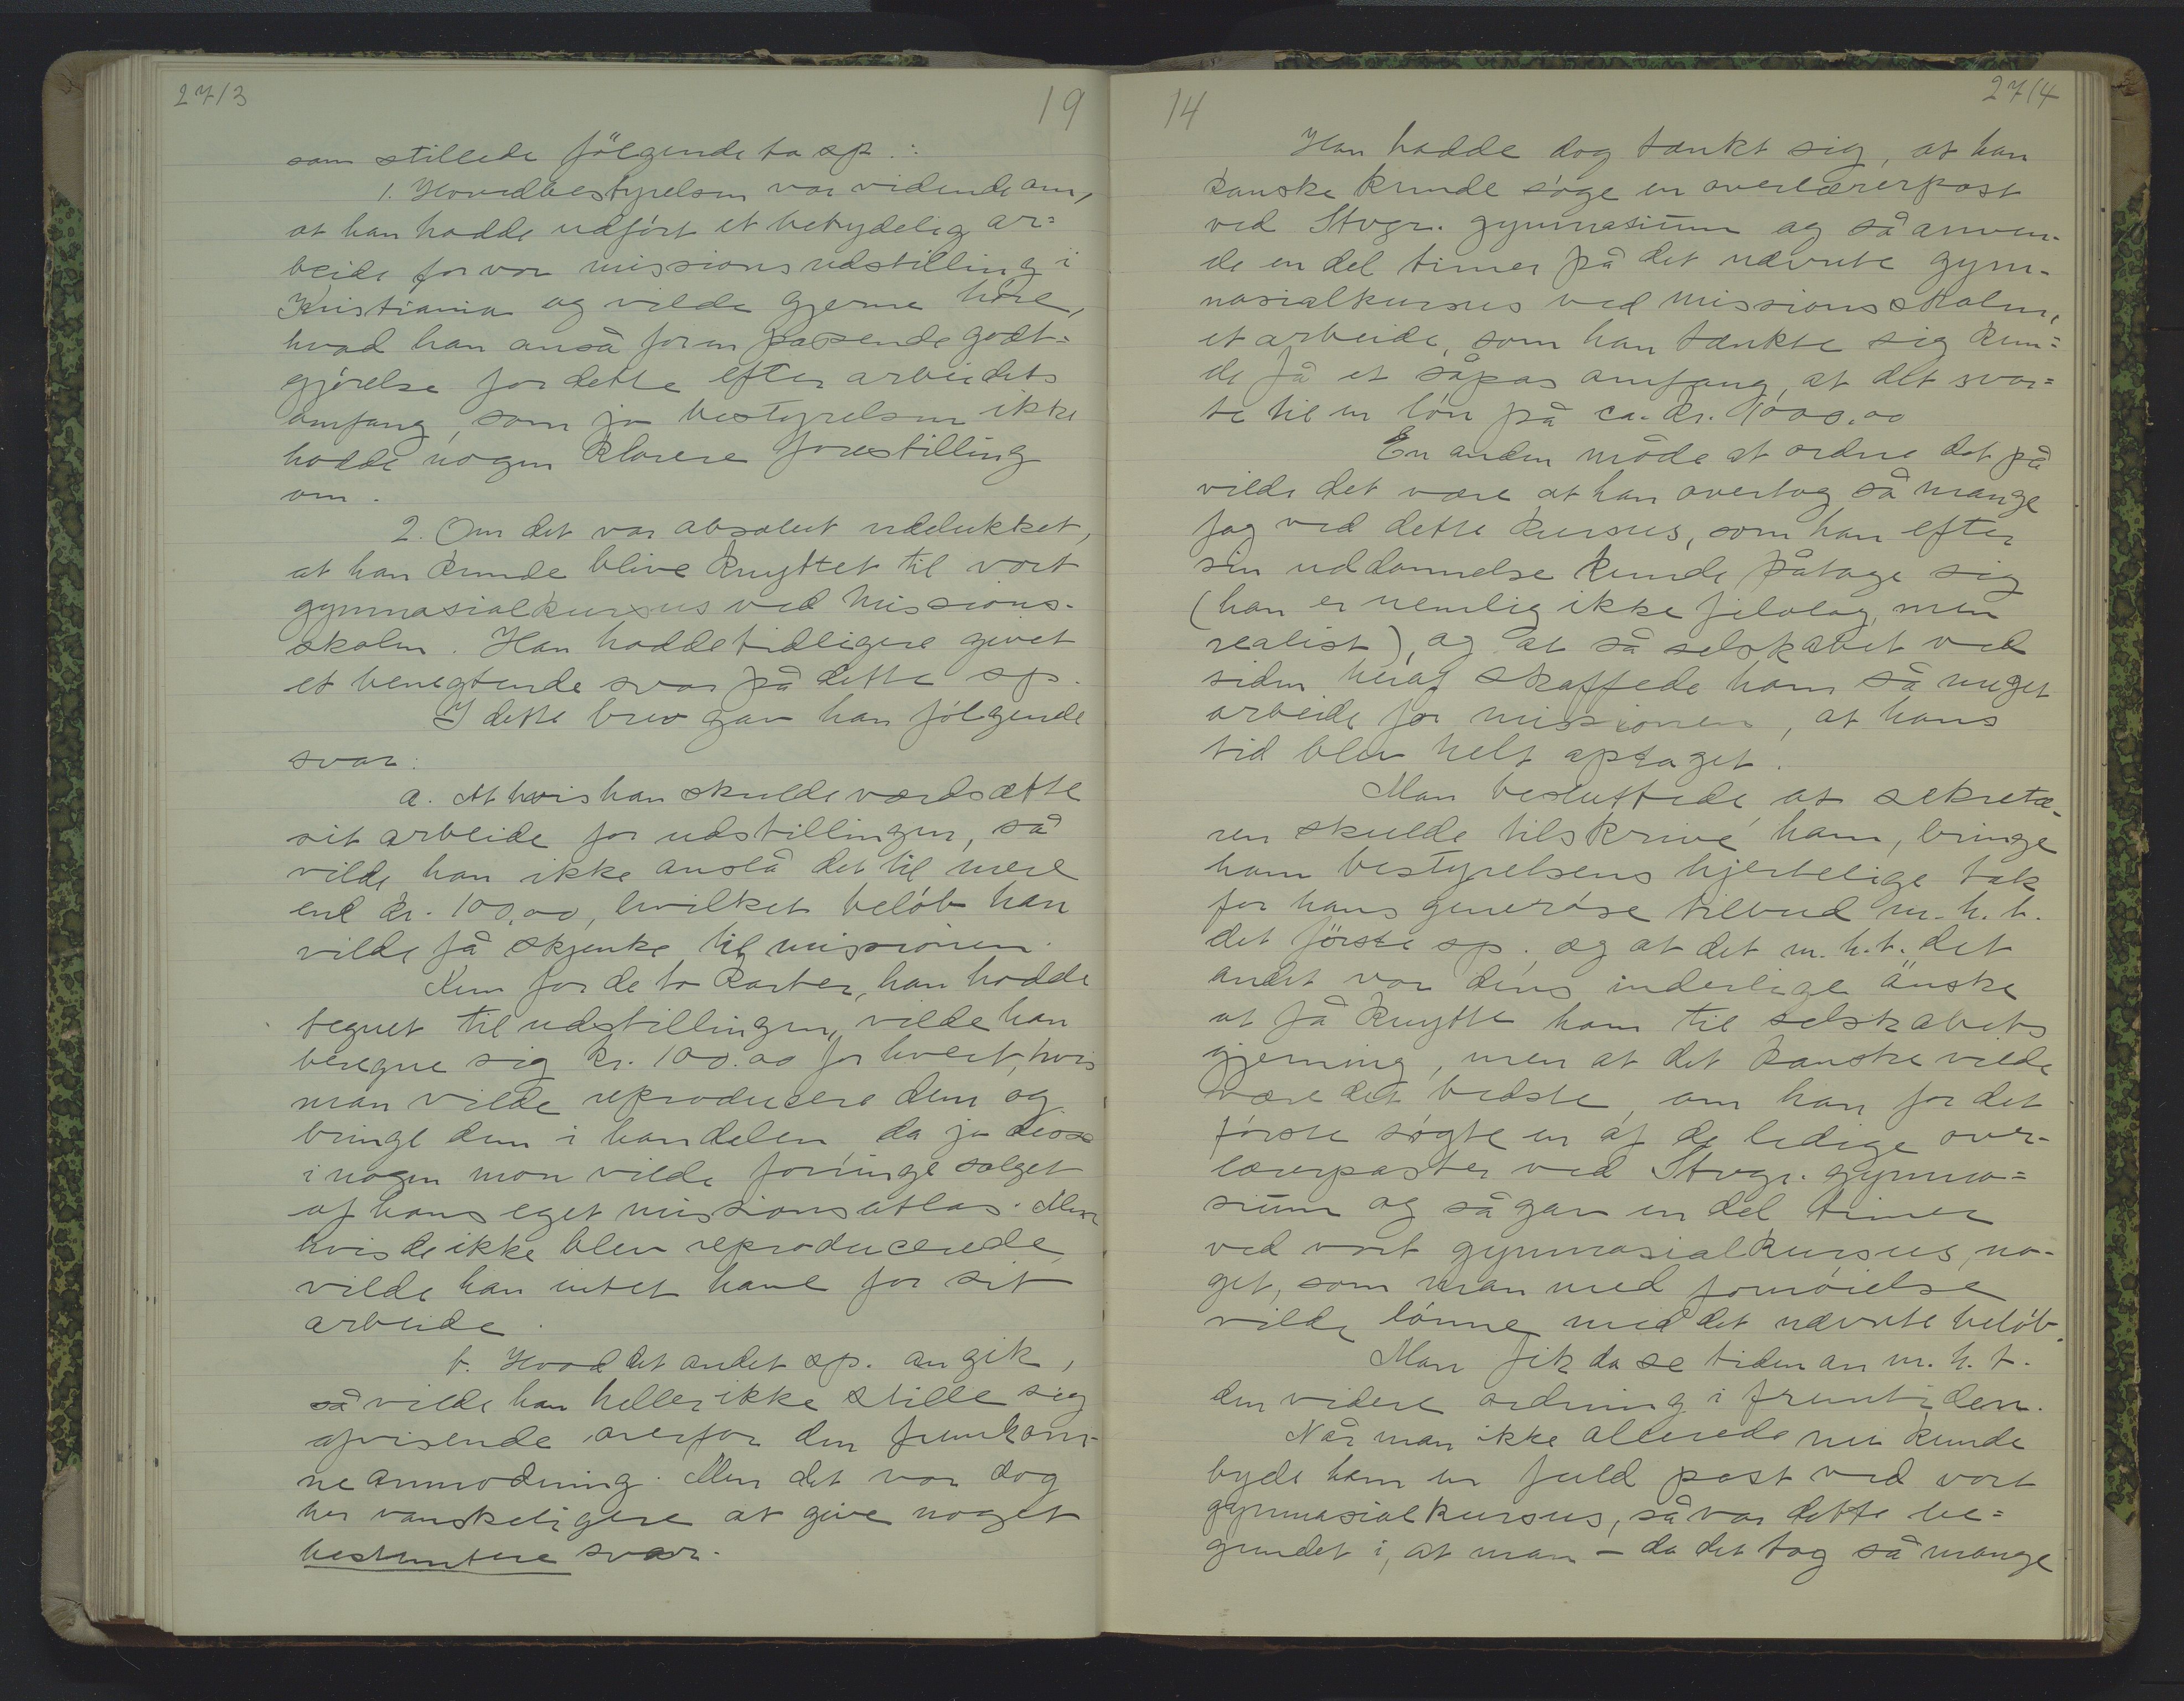 27/3
19
som stillede følgende to sp.:
1. Hovedbestyrelsen var vidende om,
at han hadde udført et betydelig ar=
beide for vor missionsudstilling i
Kristiania og vilde gjerne høre,
hvad han anså for en passende godt=
gjørelse for dette efter arbeidets
omfang, som jo bestyrelsen ikke
hadde nogen klarere forestilling
om.
2. Om det var absolut udelukket,
at han kunde blive knyttet til vort
gymnasialkursus ved missions-
skolen. Han hadde tidligere givet
et benegtende svar på dette sp.
I dette brev gav han følgende
svar:
a. At hvis han skulde værdsætte
sit arbeide for udstillingen, så
vilde han ikke anslå det til mere
end kr. 100,00, hvilket beløb han
vilde få skjenke til missionen.
Kun for de to karter, han hadde
tegnet til udstillingen, vilde han
beregne sig kr. 100.00 for hvert, hvis
man vilde reproducere dem og
bringe dem i handelen da jo disse
i nogen mon vilde forringe salget
af hans eget missionsatlas. Men
hvis de ikke blev reproducerede,
vilde han intet have for sit
arbeide.
b. Hvad det andet sp. angik,
så vilde han heller ikke stille sig
afvisende overfor den fremkom-
ne anmodning. Men det var dog
her vanskeligere at give noget
bestemtere svar.
14
27/4
Han hadde dog tænkt sig, at han
kanske kunde søge en overlærerpost
ved Stvgr. gymnasium og så anven-
de en del timer på det nævnte gym-
nasialkursus ved missionsskolen,
et arbeide, som han tænkte sig kun=
de få et såpas omfang, at det svar=
te til en løn på ca. kr. 1000.00
En anden måde at ordne det på
vilde det være at han overtog så mange
fag ved dette kursus, som han efter
sin uddannelse kunde påtage sig
(han er nemlig ikke filolog, men
realist), og at så selskabet ved
siden heraf skaffede ham så meget
arbeide for missionen, at hans
tid blev helt optaget.
Man besluttede at sekretæ-
ren skulde tilskrive ham, bringe
ham bestyrelsens hjertelige tak
for hans generøse tilbud m.h.t.
det første sp. og at det m.h.t. det
andet var dens inderlige ønske
at få knytte ham til selskabets
gjerning, men at det kanske vilde
være det bedste, om han for det
første søgte en af de ledige over-
lærerposter ved Stvgr. gymna=
sium og så gav en del timer
ved vort gymnasialkursus, no-
get, som man med fornøielse
vilde lønne med det nævnte beløb.
Man fik da se tiden an m.h.t.
den videre ordning i fremtiden.
Når man ikke allerede nu kunde
byde ham en fuld post ved vort
gymnasialkursus, så var dette be=
grundet i, at man – da det tog så mange